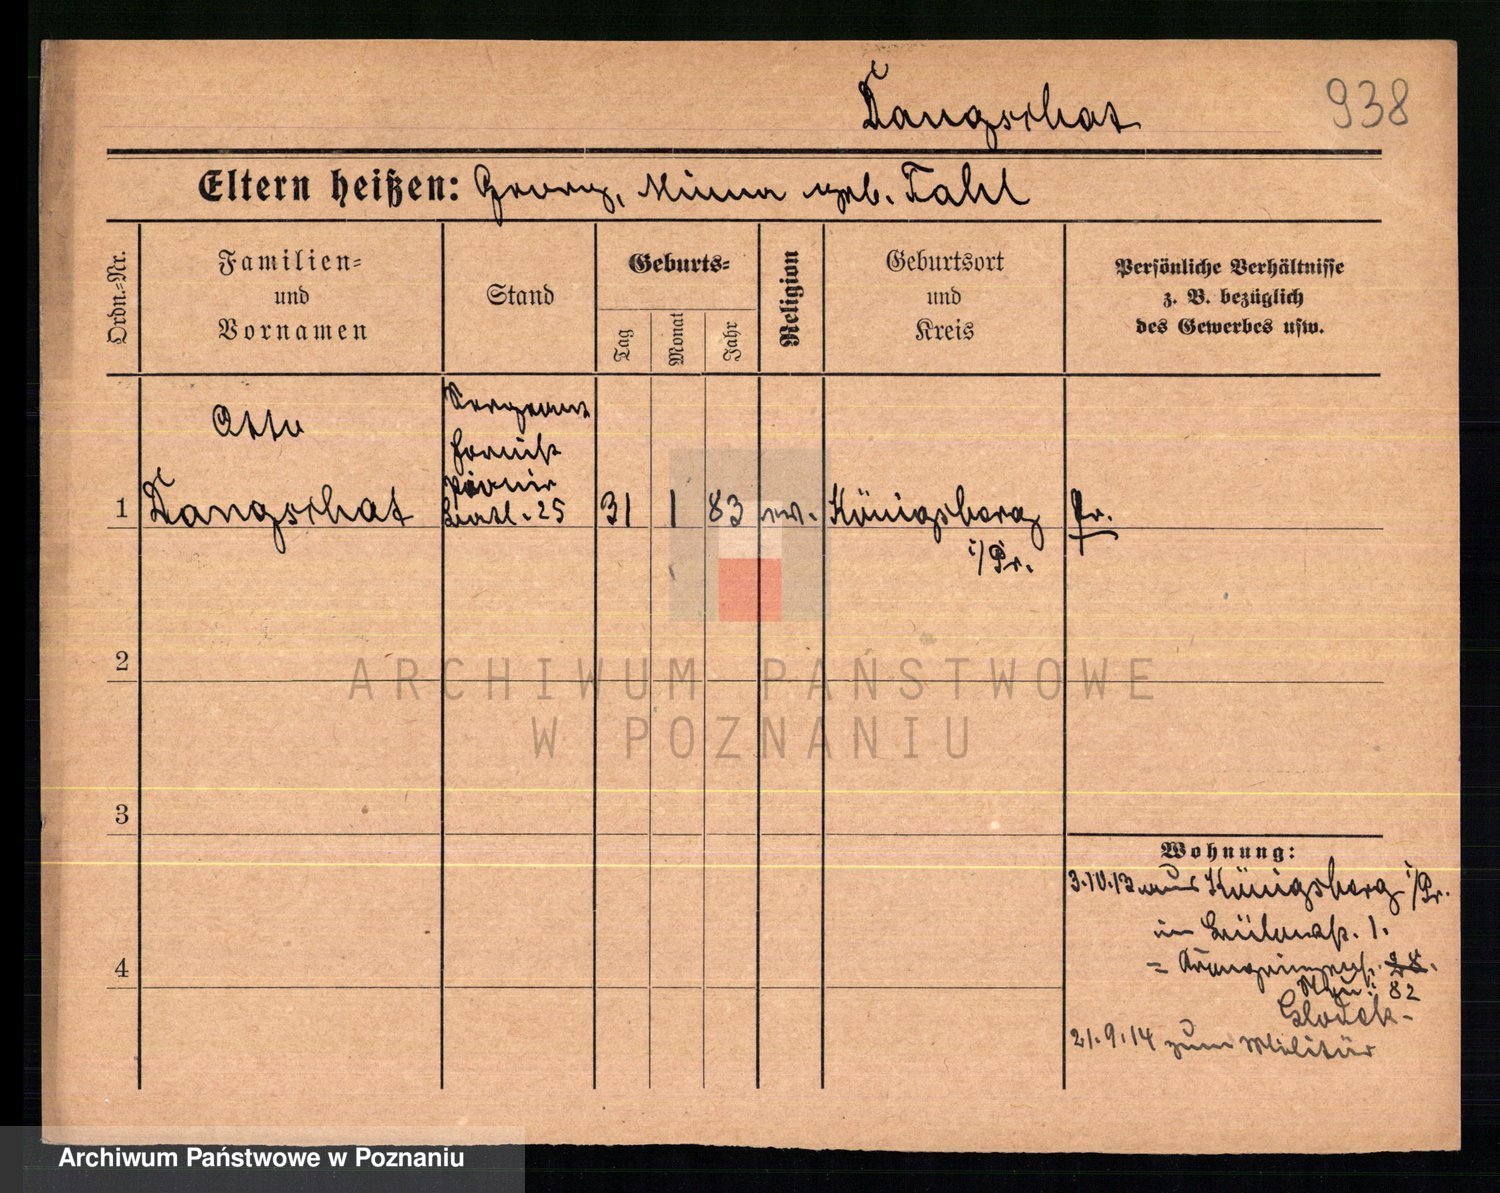 Dangschat
938
Eltern heißen: Georg, Minna geb. Dahl
Ordn.-Nr.
Familien- und Vornamen
Stand
Geburts-
Tag
Monat
Jahr
Religion
Geburtsort und Kreis
Persönliche Verhältnisse z. B. bezüglich des Gewerbes usw.
Otto
Sergeant
1 Dangschat
31 1 83 ev. Königsberg Pr.
i/Pr.
2
3
4
Wohnung:
3.10.13 aus Königsberg i/Pr.
in Bülowstr. 1.
82
21.9.14 zum Militär
ARCHIWUM PAŃSTWOWE
W POZNANIU
Archiwum Państwowe w Poznaniu